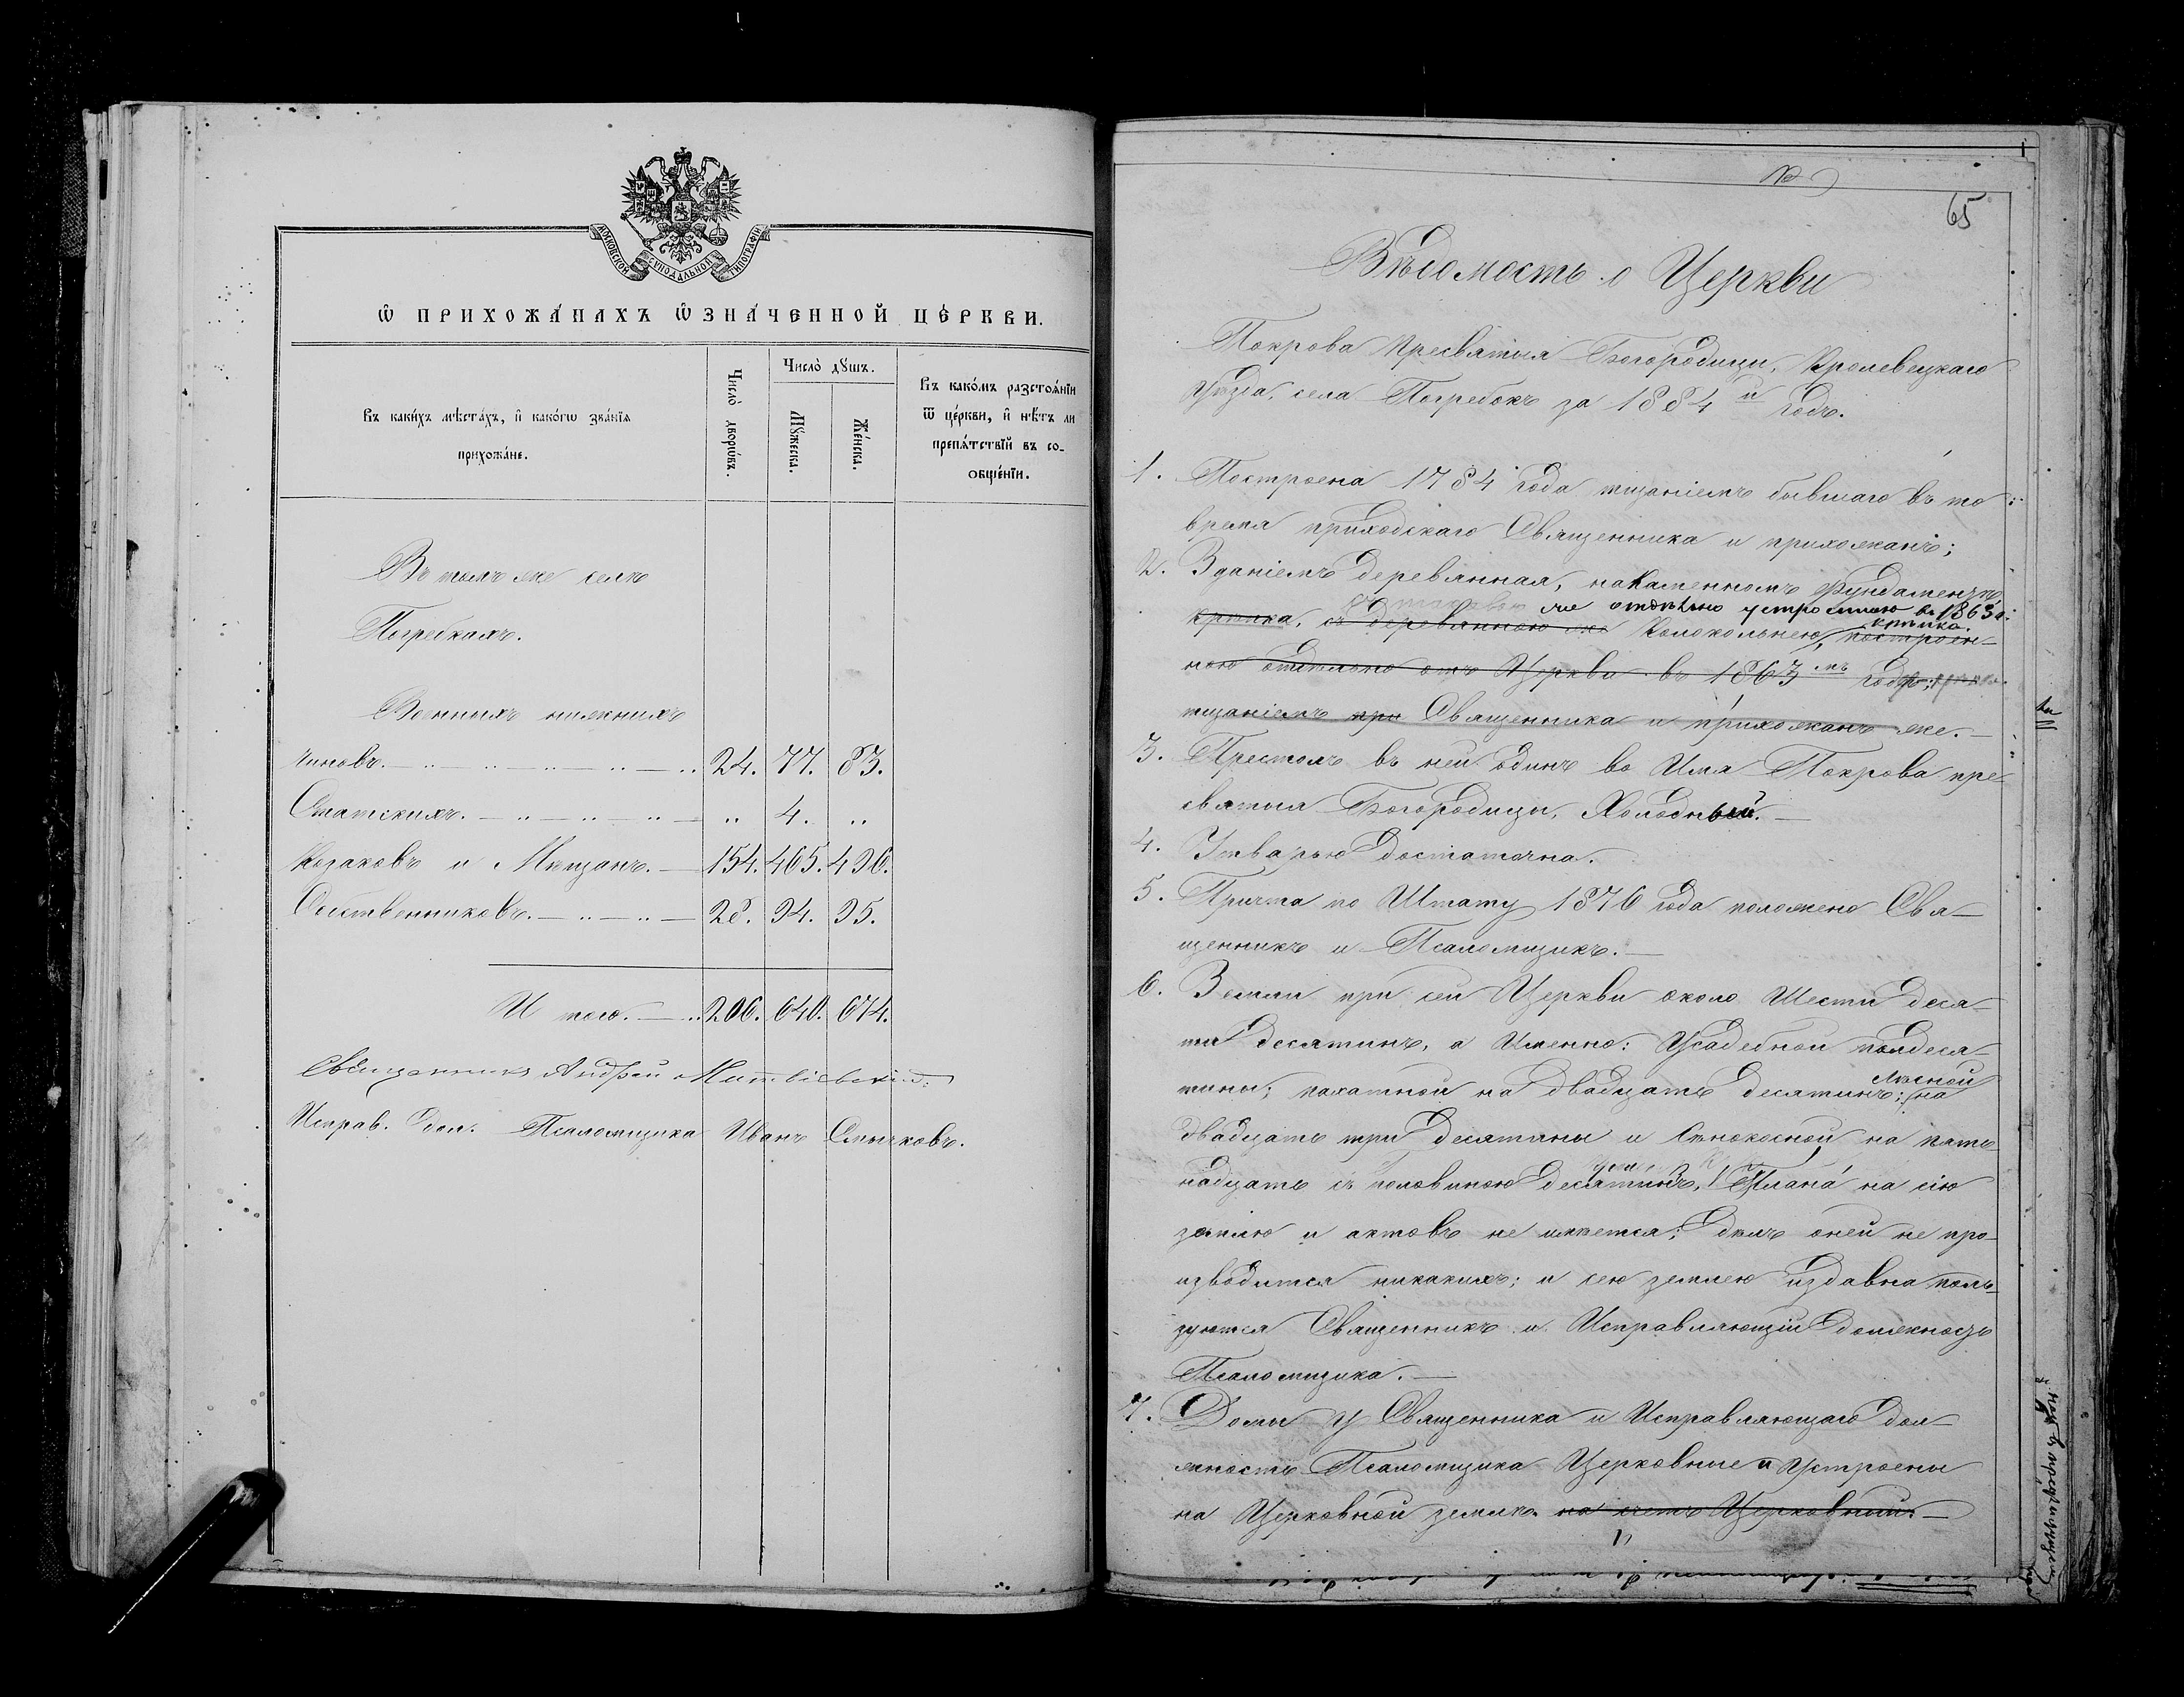 МОСКОВСКОЙ СѴНОДАЛЬНОЙ ТИПОГРАФІИ
Ѡ ПРИХОЖА́НАХЪ Ѡ҆ЗНА́ЧЕННОЙ ЦЕ́РКВИ.
Въ каки́хъ мѣста́хъ, и҆ како́гѡ зва́нїѧ прихожа́не.
Число̀ дворѡ́въ.
Число̀ дꙋ́шъ.
Мꙋ́жеска.
Же́нска.
Въ како́мъ разстоѧ́нїи ѿ це́ркви, и҆ нѣ́тъ ли препѧ́тствїй въ соѻбще́нїи.
Въ томъ же селѣ
Погребкахъ.
Военныхъ нижнихъ
чиновъ. 24. 77. 83.
Статскихъ. „ 4. „
Козаковъ и Мѣщанъ. 154. 465. 496.
Собственниковъ. 28. 94. 95.
И того. 206. 640. 674.
Священникъ Андрей Матвіевскій.
Исправ. дол. Псаломщика Иванъ Смычковъ.
65
Вѣдомость о Церкви
Покрова Пресвятыя Богородицы, Кролевецкаго
Уѣзда, села Погребокъ за 1884 й годъ.
1. Построена 1784 года тщаніемъ бывшаго въ то
время приходскаго Священника и прихожанъ;
2. Зданіемъ деревянная, на каменномъ фундаментѣ
же отдѣльно устроенною въ 1863 г.
крѣпка, съ деревянною же Колокольнею, построен-
крѣпка.
ною отдѣльно отъ Церкви въ 1863 мъ годѣ;
тщаніемъ при Священника и прихожанъ же.
3. Престолъ въ ней одинъ во Имя Покрова пре-
святыя Богородицы, Холодный.
4. Утварью достаточна.
5. Причта по Штату 1876 года положено Свя-
щенникъ и Псаломщикъ.
6. Земли при сей Церкви около Шести деся-
ти десятинъ, а Именно: Усадебной полдеся-
тины; пахатной на двадцать десятинъ; лѣсной на
двадцать три десятины и Сѣнокосной на пять
надцать съ половиною десятинъ, Плана на сію
землю и актовъ не имѣется; дѣлъ оней не про-
изводится никакихъ; и сею землею издавна поль-
зуются Священникъ и Исправляющій должность
Псаломщика.
7. Домы у Священника и Исправляющаго дол-
жность Псаломщика Церковные и Устроены
на Церковной землѣ на счетъ Церковный.